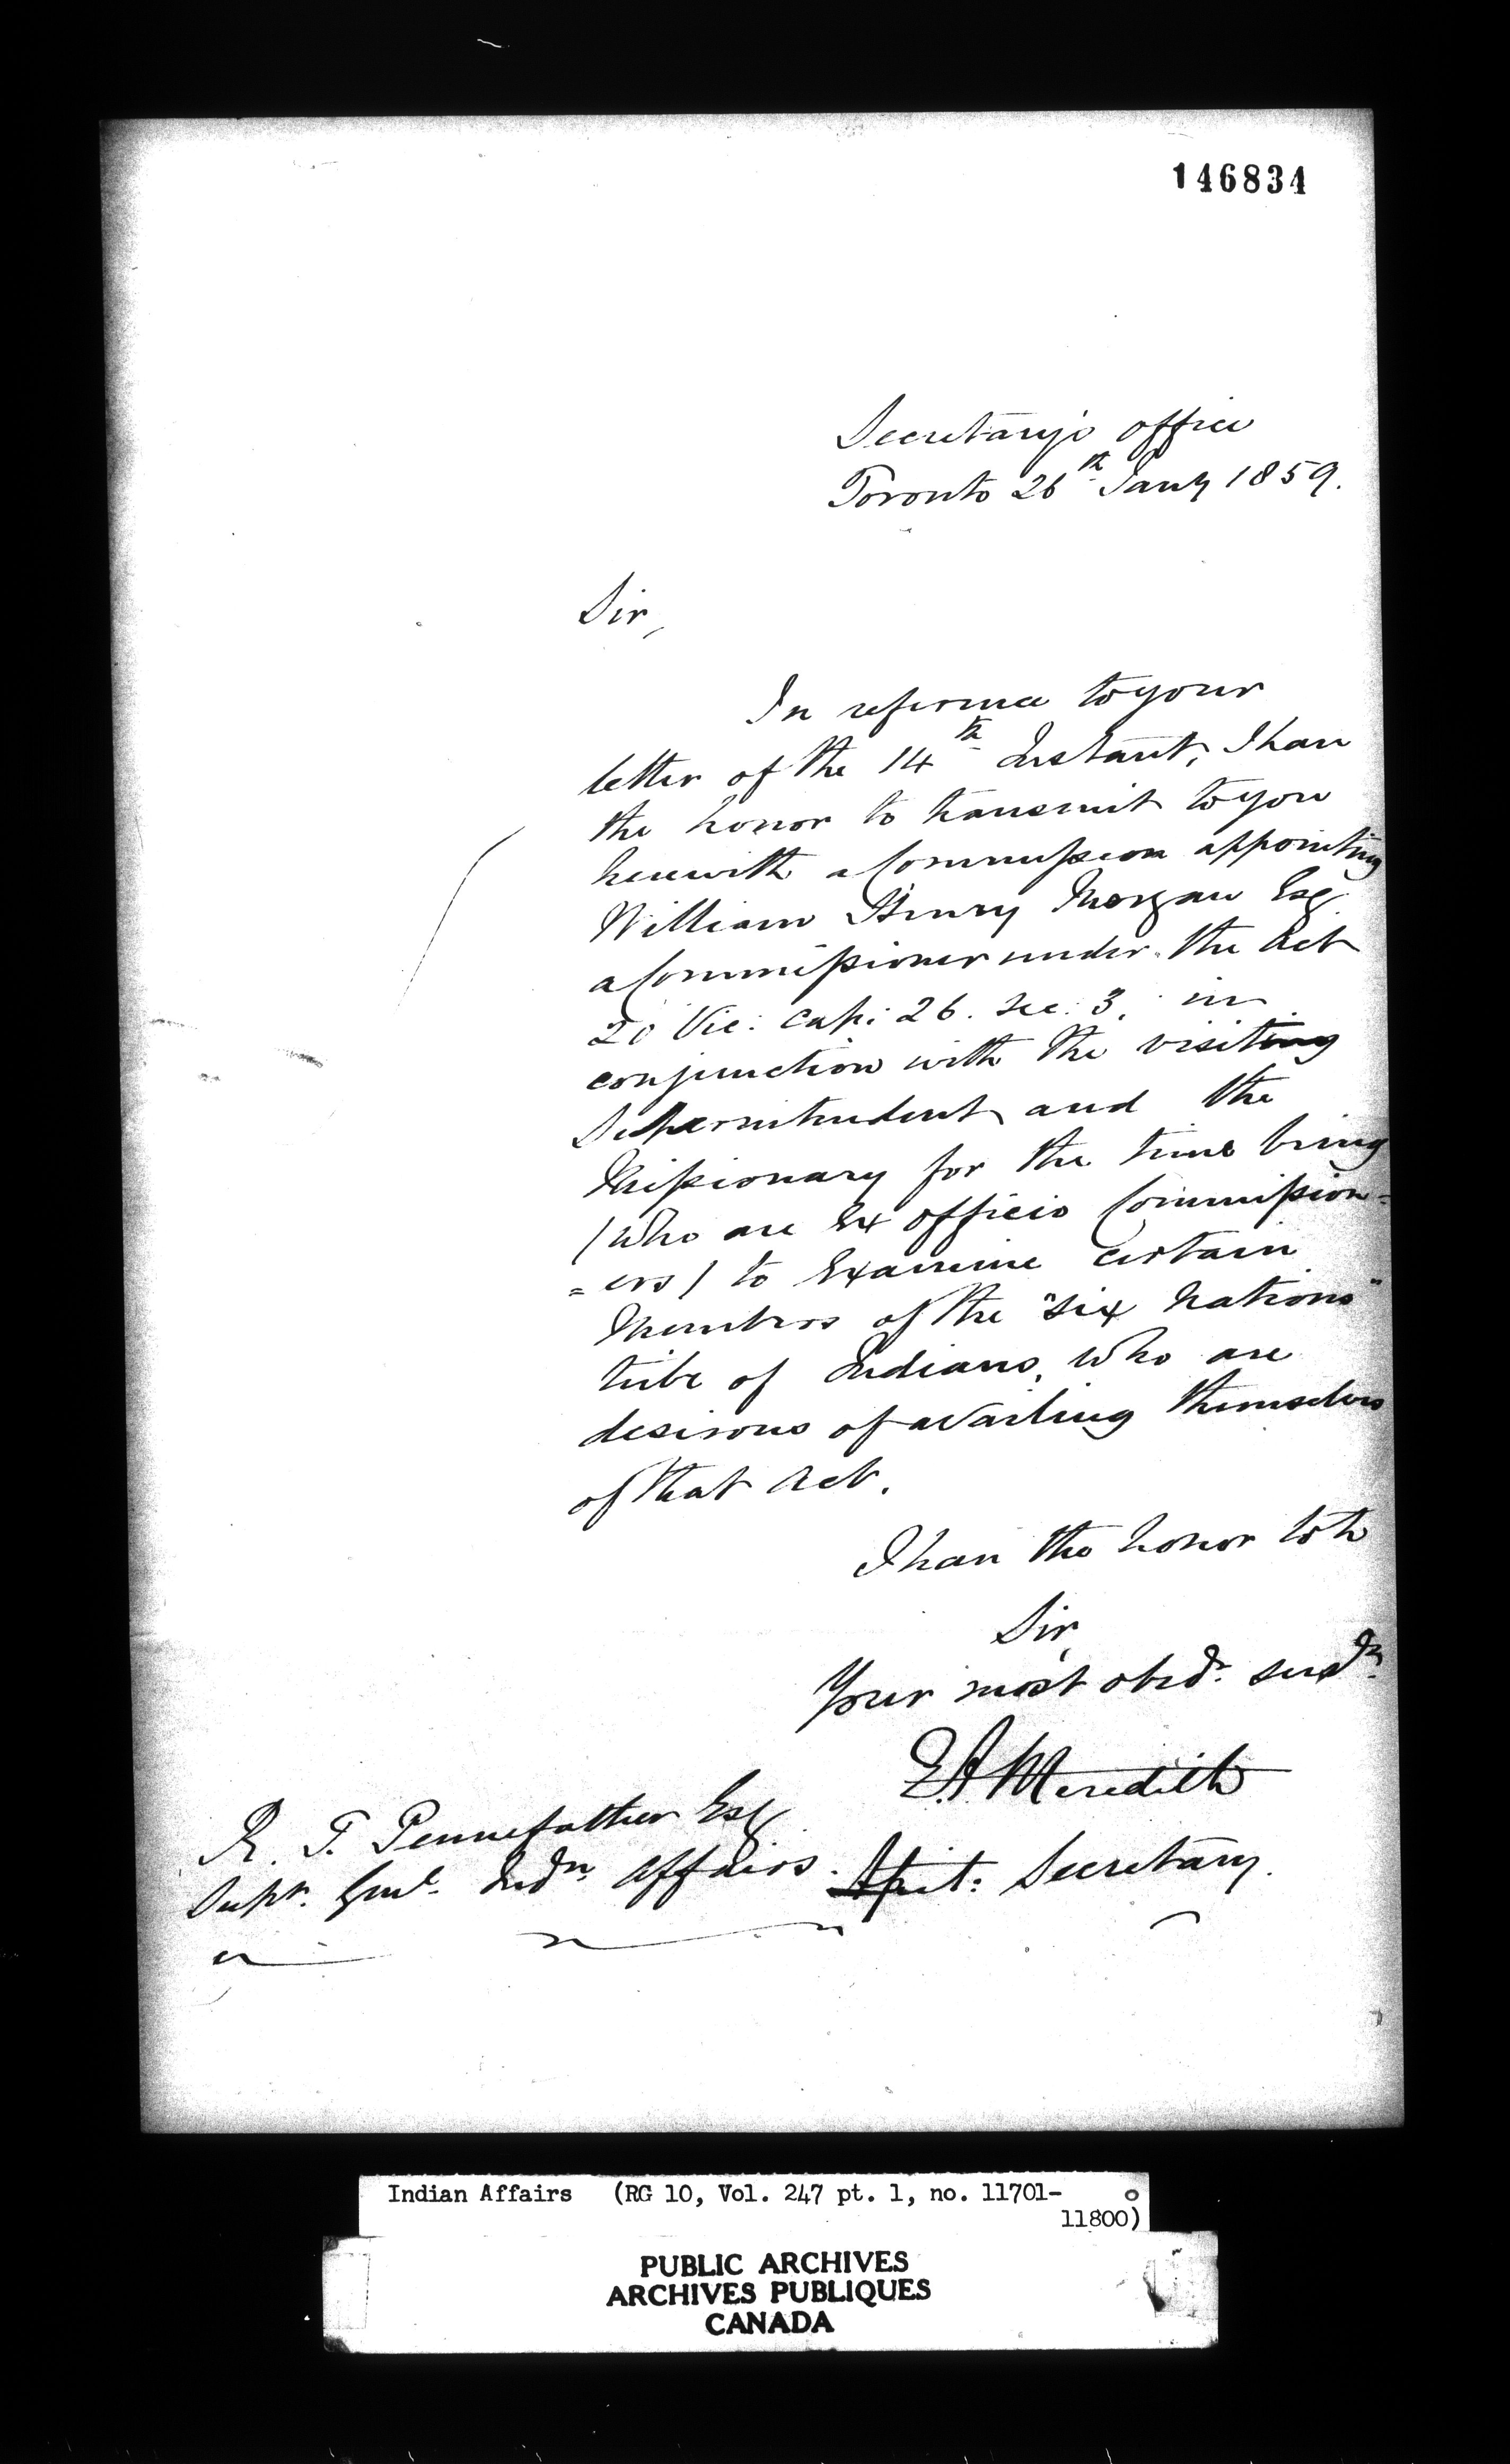 146834
Secretary's office
Toronto 26th Jany 1859.
Sir,
In reference to your
letter of the 14th Instant, I have
the honor to transmit to you
herewith a Commission appointing
William Henry Morgan Esq
a Commissioner under the Act
20 Vic: Cap: 26. Sec: 3. in
conjunction with the visiting
Superintendent and the
Missionary for the time being
(who are Ex officio Commission=
=ers) to Examine certain
Members of the "Six Nations"
tribe of Indians, who are
desirous of availing themselves
of that Act.
I have the honor to be
Sir,
Your most obedt. servt.
E.A. Meredith
R. T. Pennefather Esq
Supt. Genl. Indn. Affairs.
Asst: Secretary.
Indian Affairs (RG 10, Vol. 247 pt. 1, no. 11701-
11800)
PUBLIC ARCHIVES
ARCHIVES PUBLIQUES
CANADA